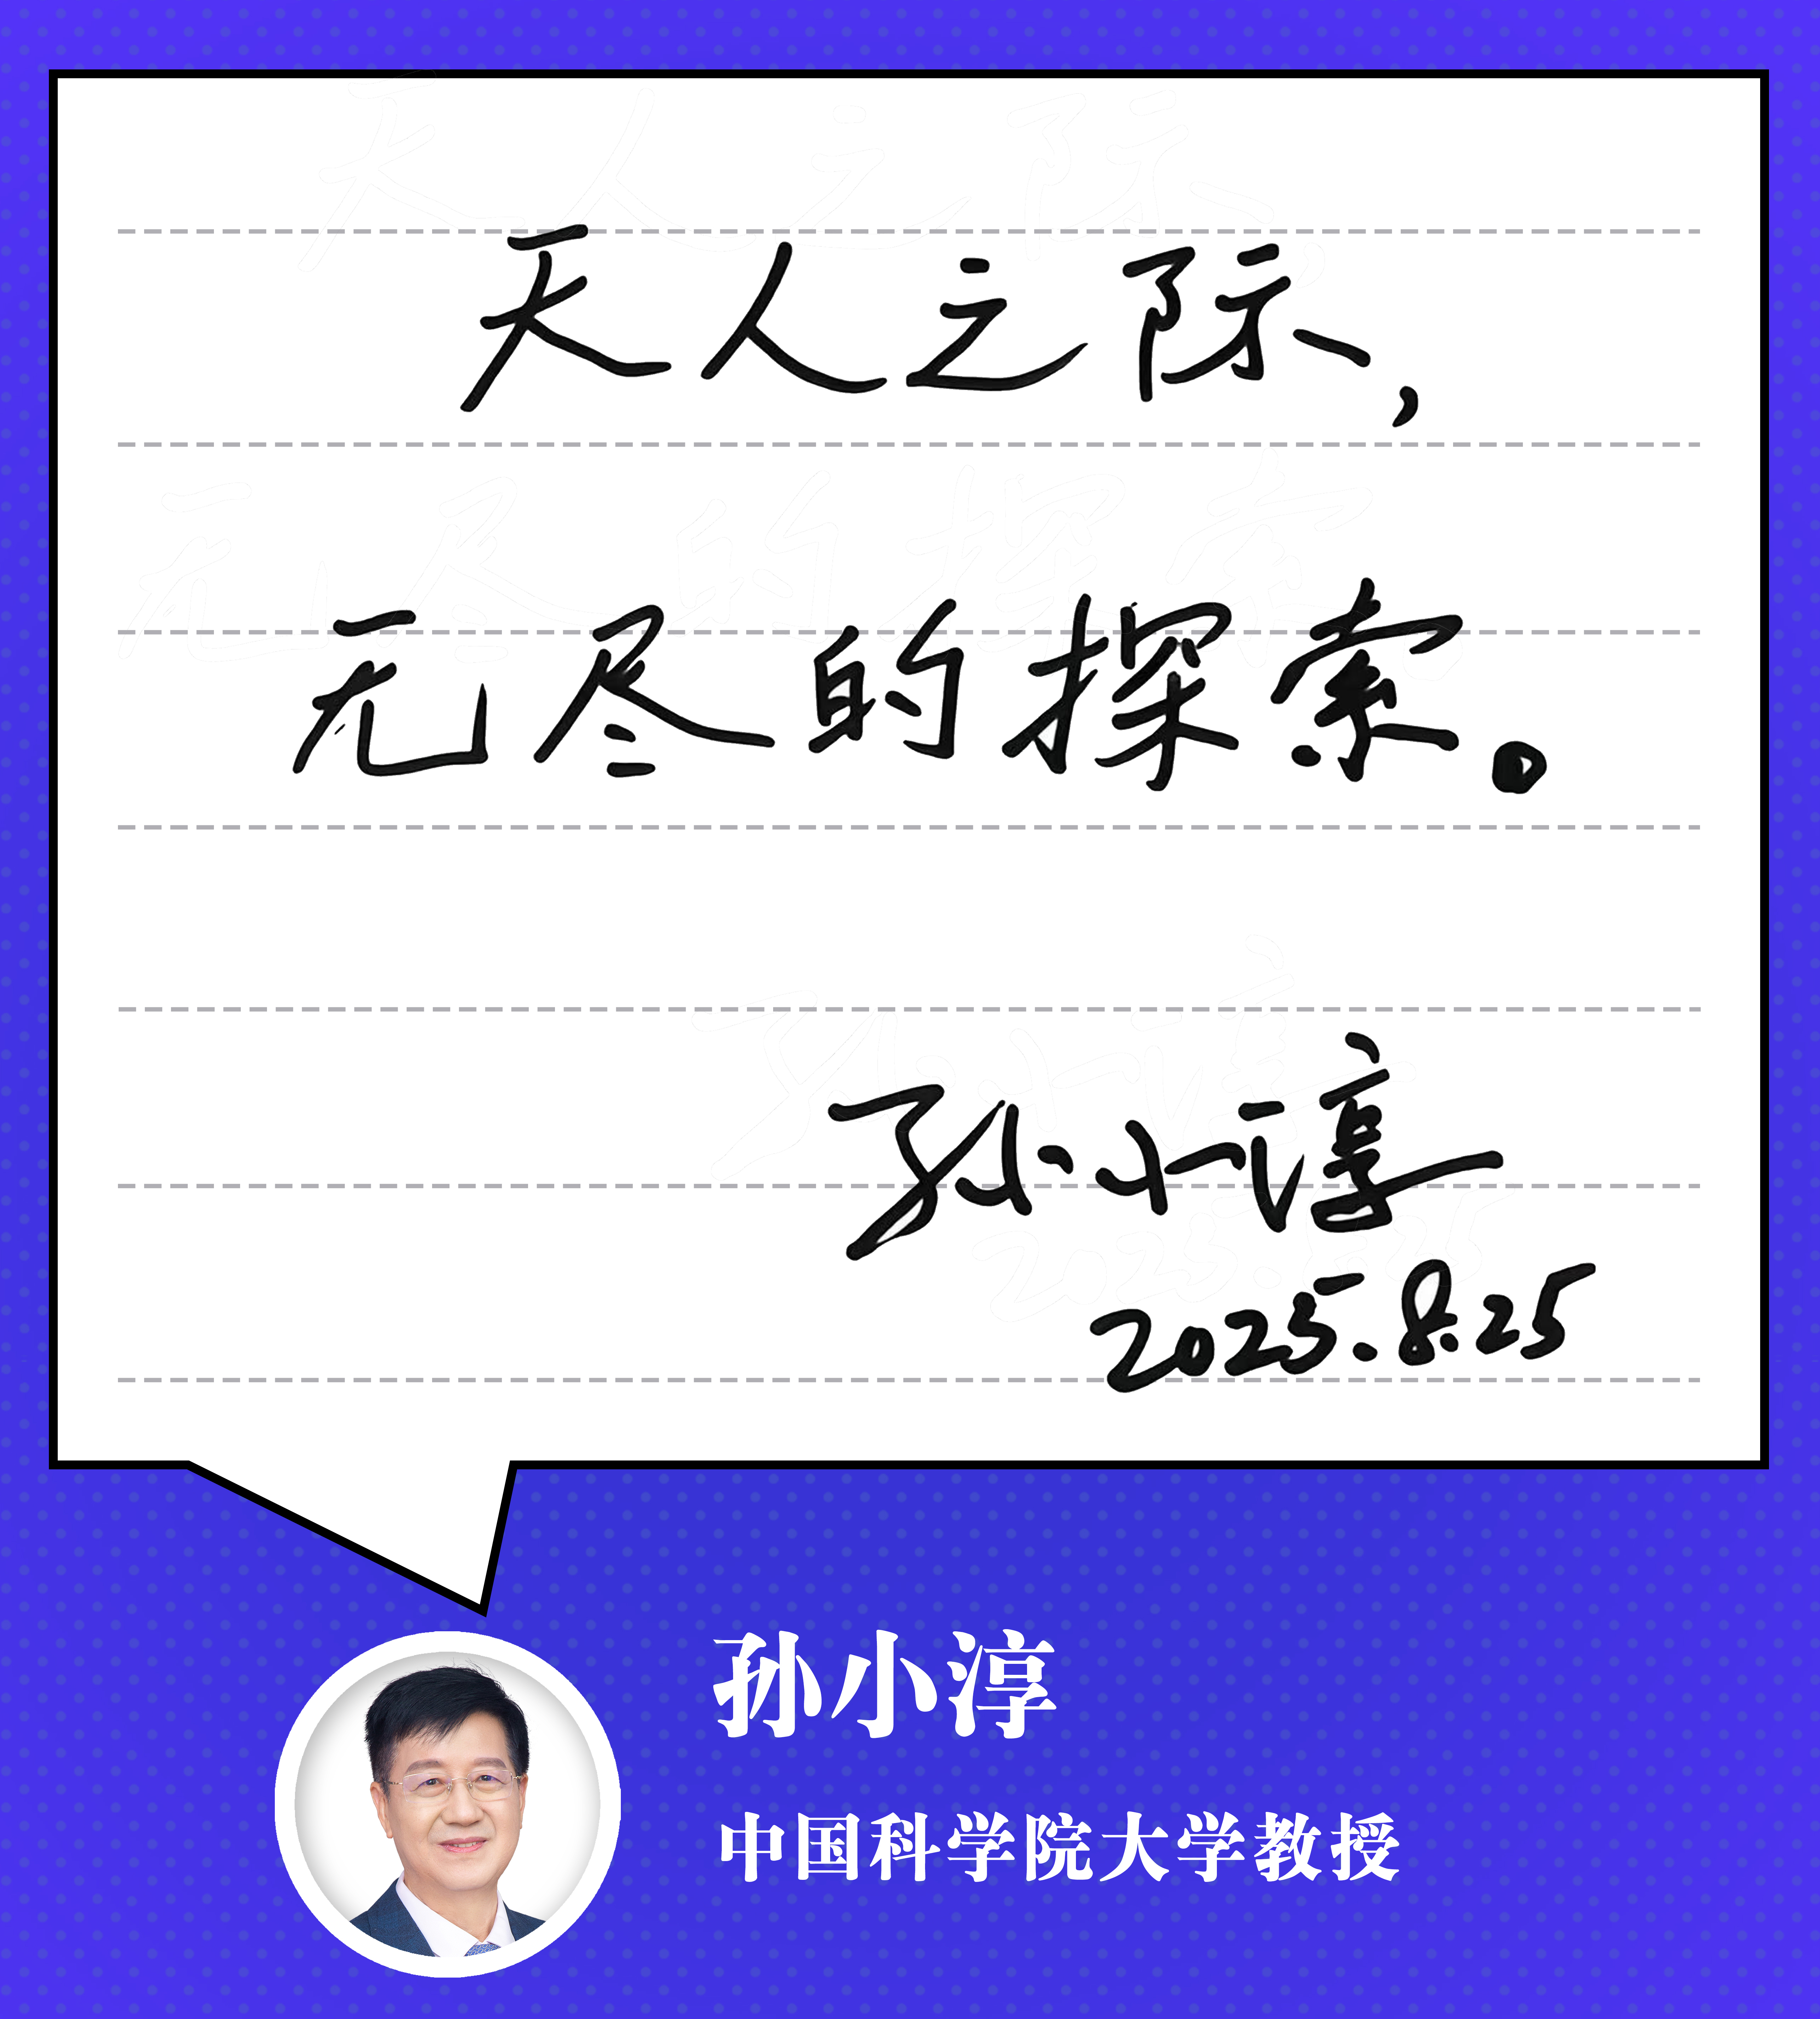 天人之际,
无尽的探索。
孙小淳
2025.8.25
孙小淳
中国科学院大学教授